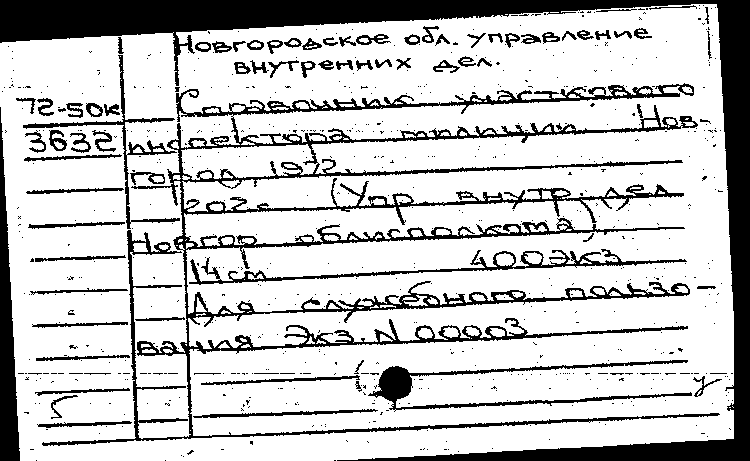 Новгородское обл. управление
внутренних дел.
72-50к
Справочник участкового
3632
инспектора милиции. Нов-
город, 1972.
202с (Упр. внутр. дел
Новгор облисполкома).
14см 400экз
Для служебного пользо-
вания Экз. N 00003
Б
у